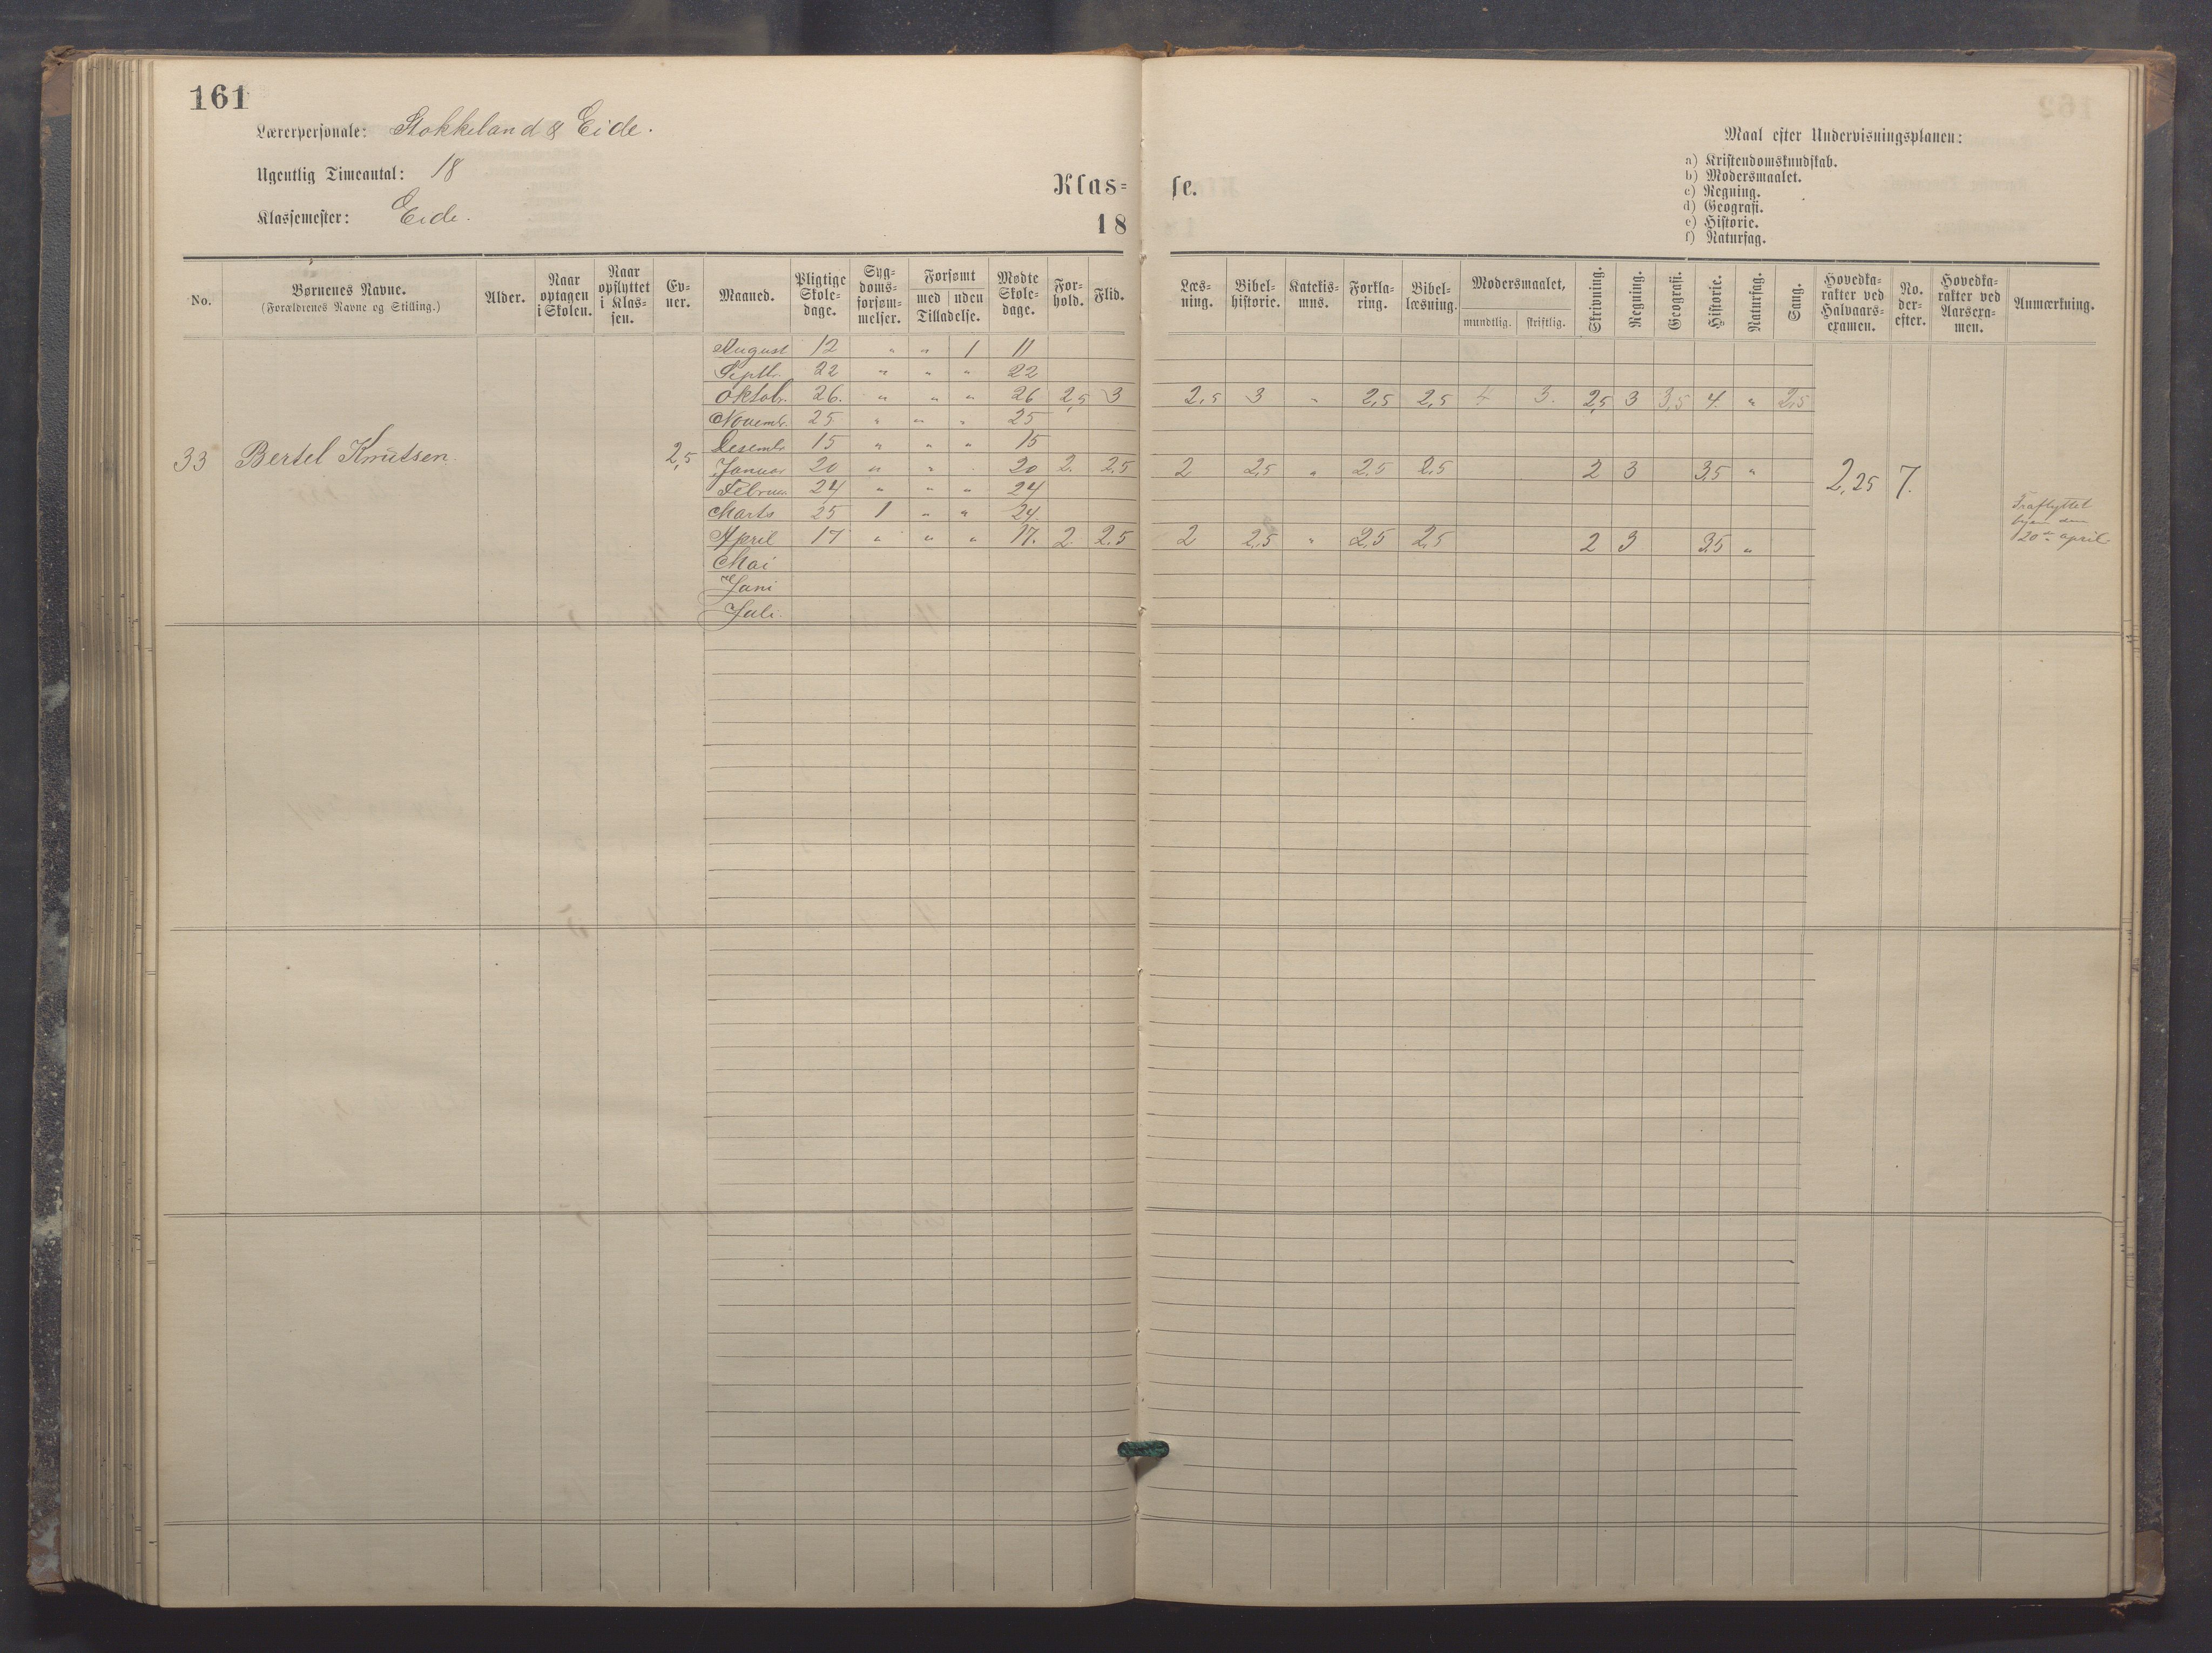 161
Lærerpersonale: Stokkeland & Eide.
Ugentlig Timeantal: 18
Klassemester: Eide.
Klas= se.
18
Maal efter Undervisningsplanen:
a) Kristendomskundskab.
b) Modersmaalet.
c) Regning.
d) Geografi.
e) Historie.
f) Naturfag.
No. Børnenes Navne. (Forældrenes Navne og Stilling.) Alder. Naar optagen i Skolen. Naar opflyttet i Klas-sen. Ev-ner. Maaned. Pligtige Skole-dage. Syg-doms-forsøm-melser. Forsømt med uden Tilladelse. Mødte Skole-dage. For-hold. Flid. Læs-ning. Bibel-historie. Katekis-mus. Forkla-ring. Bibel-læsning. Modersmaalet, mundtlig. skriftlig. Skrivning. Regning. Geografi. Historie. Naturfag. Sang. Hovedka-rakter ved Halvaars-examen. No. der-efter. Hovedka-rakter ved Aarsexa-men. Anmærkning.
August 12 " " 1 11
Septbr. 22 " " " 22
Oktobr. 26. " " " 26 2,5 3 2,5 3 " 2,5 2,5 4 3. 2,5 3 3,5 4. " 2,5
Novembr. 25 " " " 25
Desembr. 15 " " " 15
33 Bertel Knutsen. 2,5 Januar 20 " " 20 2. 2,5 2 2,5 " 2,5 2,5 2 3 3,5 " 2,25 7.
Februar 24 " " " 24
Marts 25 1 " " 24.
April 17 " " " 17. 2. 2,5 2 2,5 " 2,5 2,5 2 3 3,5 "
Mai
Juni
Juli.
Fraflyttet
byen den
20de april.